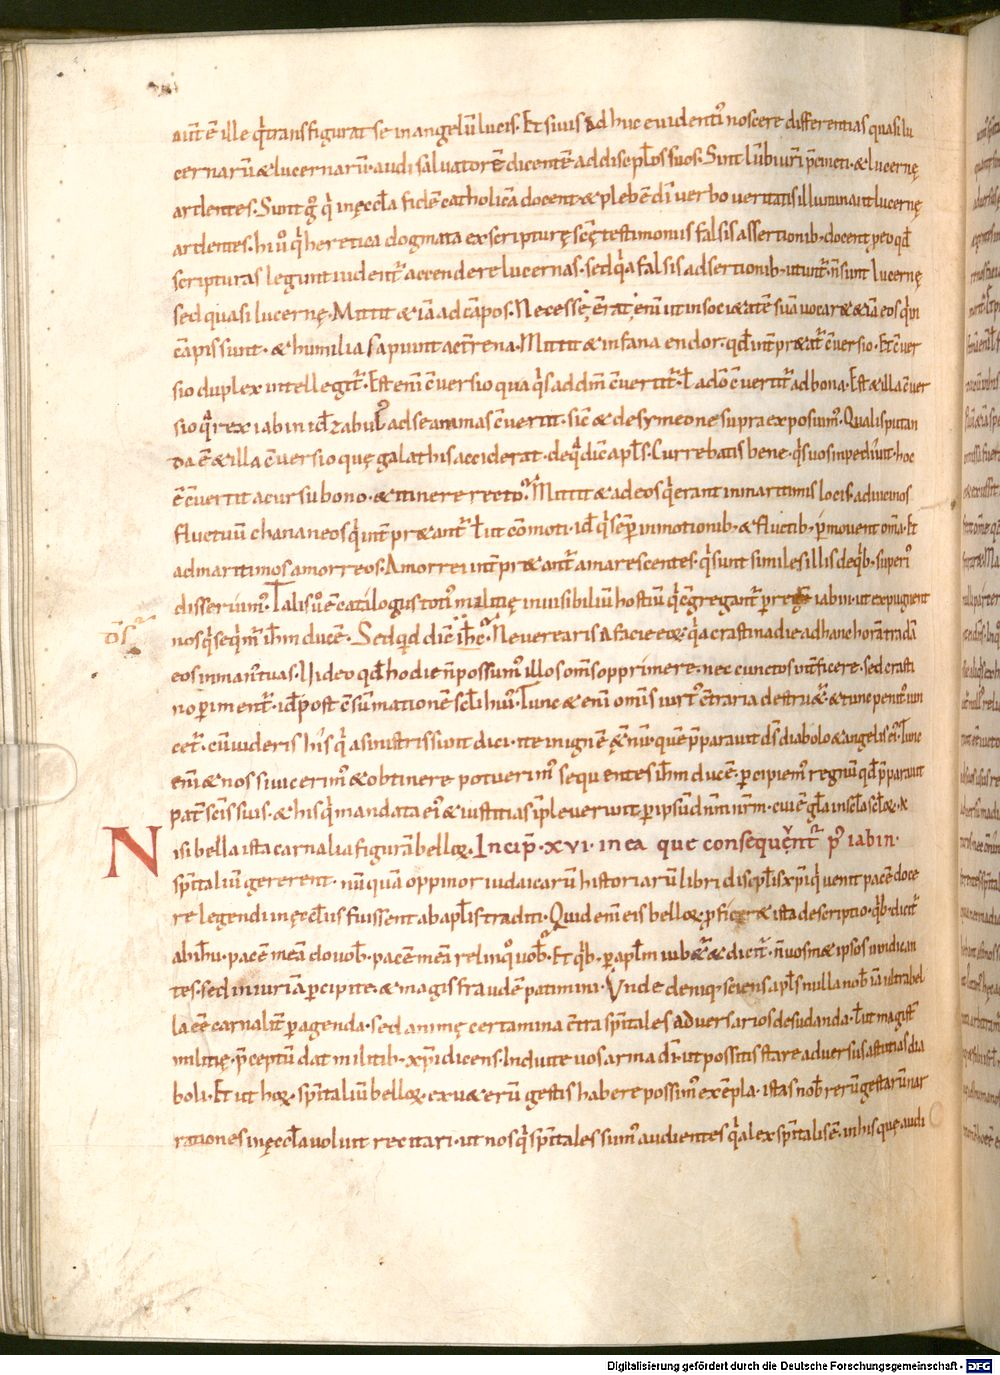 aut ē ille q̄ transfigurat se in angelū lucis. Et si uis adhuc euidentiꝰ noscere differentias quasi lu
cernarū & lucernarū. audi saluatorē dicentē ad discip̄los suos. Sint lūbi uri p̄cincti. & lucernę
ardentes. Sunt g̊ q̄ in ęccl̄a fidē catholicā docent & plebē dī uerbo ueritatis illuminant lucernę
ardentes. hi ů q̄ heretica dogmata ex scripturę scę̄ testimoniis falsis assertionib; docent ꝓ eo qd̄
scripturas legunt uident̄ accendere lucernas. sed q̄a falsis adsertionib; utunt̄. n̄ sunt lucernę
sed quasi lucernę. Mittit & iā ad cāpos. Necesse erat enī ut in societatē suā uocar& & iā eos q̄ in
cāpis sunt. & humilia sapiunt ac t̄rena. Mittit & in fana endor. qd̄ int̄pr&at̄ c̄uersio. Et c̄uer
sio duplex intellegit̄. Est enī c̄uersio qua q̄s ad dn̄m c̄uertit̄. ł a dō c̄uertit̄ ad bona. Est & illa c̄uer
sio q̄ rex iabin id ē zabulꝰ ad se animas c̄uertit. sic̄ & de symeone supra exposuimꝰ. Qualis putan
da ē & illa c̄uersio quę galathis acciderat. de q̄ dic̄ apl̄s. Currebatis bene. q̄s uos inpediuit. hoc
ē c̄uertit a cursu bono. & itinere recto. Mittit & ad eos q̄ erant in maritimis locis. ad uicinos
fluctuū chananeos q̄ int̄pr&ant̄ ł ut cōmoti. id ē q̄ sēp in motionib; & fluctib; p̄mouent om̄a. Et
ad maritimos amorreos. Amorrei int̄pr&ant̄ amarescentes. q̄ sunt similes illis de q̄b; superiꝰ
disseruimꝰ. Talis ů ē catalogus totiꝰ malitię inuisibiliū hostiū q̄ c̄gregant̄ p̄ rege iabin. ut expugnent
nos q̄ seq̄m̄ ih̄m ducē. Sed quid dic̄ ih̄c. Ne uerearis a facie eoꝝ. q̄a crastina die ad hanc horā tradā
ds̄
eos in manꝰ tuas. Uideo qd̄ hodie n̄ possumꝰ illos om̄s opprimere. nec cunctos int̄ficere. sed crasti
no perimenť. id ē post c̄sūmationē scl̄i huiꝰ. Tunc & enī om̄is uirtꝰ c̄traria destru&ur. & tunc penitꝰ uin
cet̄. cū uideris his q̄ a sinistris sunt dici. ite in ignē &̄nū. quē p̄parauit ds̄ diabolo & angelis eiꝰ. Tunc
enī & nos si uicerimꝰ & obtinere potuerimꝰ sequentes ih̄m ducē. percipiemꝰ regnū qd̄ p̄parauit
pat̄ scīs suis. & his q̄ mandata eiꝰ & iustitias īpleuerunt. ꝑ ipsū dn̄m n̄rm. cui ē gl̄a in scl̄a scl̄oꝝ. x
Nisi bella ista carnalia figurā belloꝝ. Incip̄. xvi. in ea que consequent̄ pꝰ iabin.
sp̄italiū gererent. nūquā oppinor iudaicarū historiarū libri discip̄lis xp̄i q̄ uenit pacē doce
re legendi in ęccl̄iis fuissent ab apl̄is traditi. Quid enī eis belloꝝ proficer& ista descriptio. q̄b; dicit̄
ab ih̄u. pacē meā do uob̄. pacē meā relinquo uob̄. Et q̄b; p̄ apl̄m iub&̄ & dicit̄. n̄ uosm& ipsos uindican
tes. sed iniuriā ꝑcipite. & magis fraudē patimini. Unde deniq; sciens apl̄s nulla nob̄ iā ultra bel
la ēē carnalit̄ peragenda. sed animę certamina c̄tra sp̄itales aduersarios desudanda. ł ut magist̄
militię p̄ceptū dat militib; xp̄i dicens. Induite uos arma dī. ut possitis stare aduersus astutias dia
boli. Et ut hoꝝ sp̄italiū belloꝝ ex u&erū gestis habere possimꝰ exēpla. istas nob̄ rerū gestarū nar
rationes in ęccl̄a uoluit recitari. ut nos q̄ sp̄itales sumꝰ audientes q̄a lex sp̄italis ē. in his quę audi
Digitalisierung gefördert durch die Deutsche Forschungsgemeinschaft - DFG